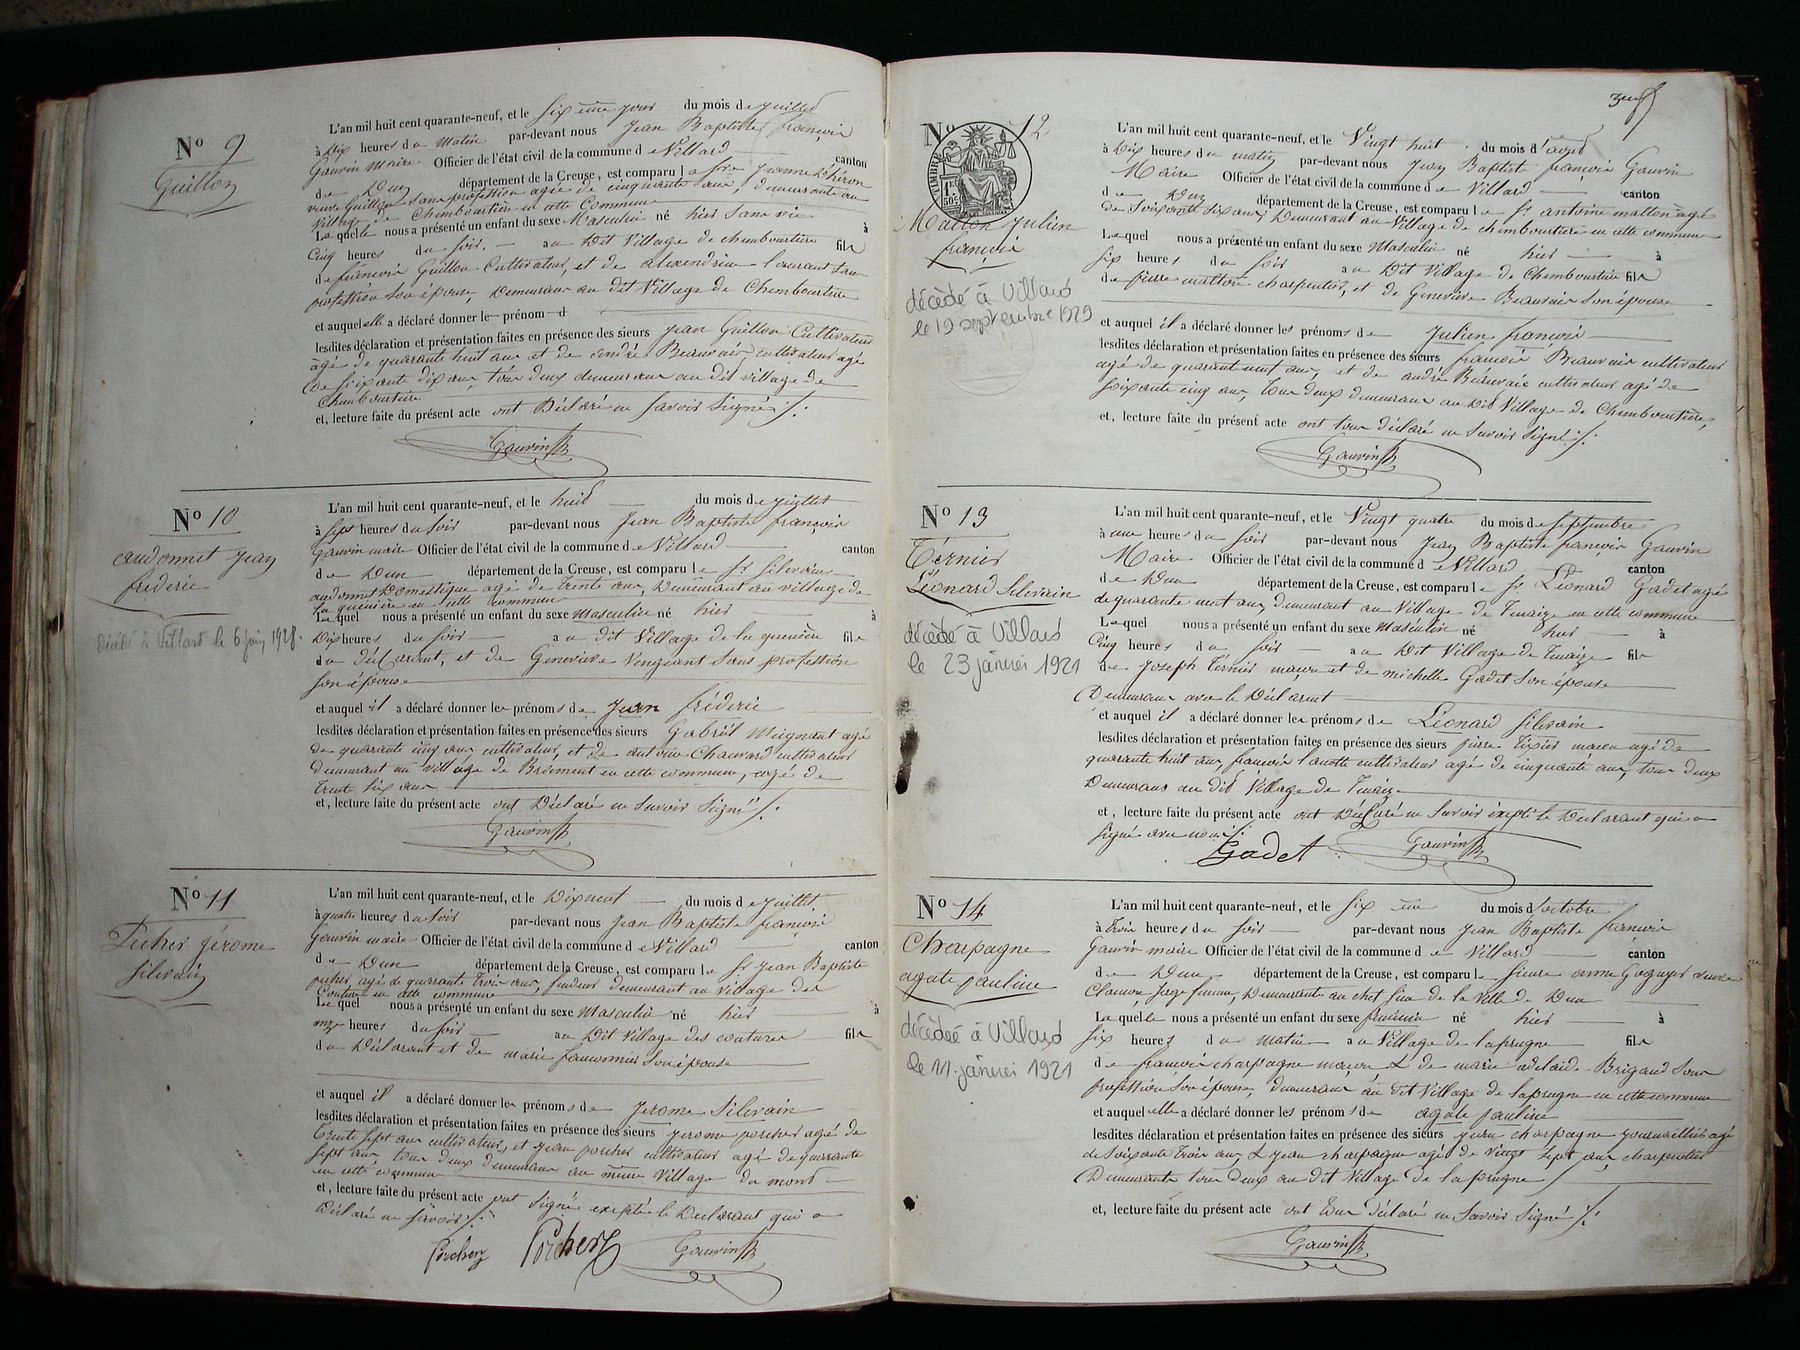 No 9
Guillon
L'an mil huit cent quarante-neuf, et le sixième jour du mois de juillet
à dix heures du matin par-devant nous Jean Baptiste françois
Gauvin maire Officier de l'état civil de la commune de Villard
canton
de Dun département de la Creuse, est comparu la
veuve Guillon sans profession agée de cinquante ans, demeurante au
Village de Chembourtière en cette Commune
Laquelle nous a présenté un enfant du sexe Masculin né hier sans vie à
Cinq heures du soir, au Dit Village de chembourtière fils
de françois Guillon Cultivateur, et de alexandrine laurant sans
profession son épouse, Demeurant au dit Village de Chembourtière
et auquel elle a déclaré donner le prénom d
lesdites déclaration et présentation faites en présence des sieurs jean Guillon Cultivateur
âgé de quarante huit ans et de andré Beauvais, cultivateur agé
de soixante dix ans, tous deux demeurant au dit village de
Chembourtière
et, lecture faite du présent acte ont Déclaré ne savoir signé
Gauvin
No 10
audonnet jean
fréderic
Décédé à Villard le 6 juin 192
L'an mil huit cent quarante-neuf, et le huit du mois de juillet
à sept heures du soir par-devant nous Jean Baptiste françois
Gauvin maire Officier de l'état civil de la commune de Villard canton
de Dun département de la Creuse, est comparu le Sr Silvain
audonnet Domestique agé de trente ans, Demeurant au village de
la en cette commune
Lequel nous a présenté un enfant du sexe masculin né hier à
Dix heures du soir au dit Village de la fils
du déclarant, et de Geneviève Vengeant sans profession
son épouse
et auquel il a déclaré donner les prénoms de Jean fréderic
lesdites déclaration et présentation faites en présence des sieurs Gabriel Meignant agé
de quarante cinq ans cultivateur, et de antoine Chavard cultivateur
demeurant au village de en cette commune, agé de
trente six ans
et, lecture faite du présent acte ont Déclaré ne Savoir Signé
Gauvin
No 11
Pecher jérome
silvain
L'an mil huit cent quarante-neuf, et le Dixneuf du mois de juillet
à quatre heures du soir par-devant nous Jean Baptiste françois
Gauvin maire Officier de l'état civil de la commune de Villard canton
de Dun département de la Creuse, est comparu le Sr jean Baptiste
agé de quarante trois ans, demeurant au village des
Coutures en cette commune
Lequel nous a présenté un enfant du sexe Masculin né hier à
onze heures du soir au Dit Village des coutures fils
du Déclarant et de marie son épouse
et auquel il a déclaré donner les prénoms de Jerome Silvain
lesdites déclaration et présentation faites en présence des sieurs jerome porcher agé de
trente sept ans cultivateur, et jean porcher cultivateur agé de quarante
sept ans, tous deux demeurant au même Village du mont
en cette commune
et, lecture faite du présent acte ont signé excepté le Déclarant qui a
Déclaré ne savoir
Porcher Porcher Gauvin
3
No 12
TIMBRE
1F 50c
Matton julien
françois
décédé à Villard
le 19 septembre 1929
L'an mil huit cent quarante-neuf, et le Vingt huit du mois d'aout
à Dix heures du matin par-devant nous Jean Baptiste françois Gauvin
Maire Officier de l'état civil de la commune de Villard
canton
de Dun département de la Creuse, est comparu le Sr antoine matton agé
de Soixante six ans, Demeurant au Village de chembourtière en cette commune
Lequel nous a présenté un enfant du sexe Masculin né hier à
six heures du soir au Dit Village de Chembourtière fils
de pierre matton charpentier, et de Geneviève Beauvais son épouse
et auquel il a déclaré donner les prénoms de Julien françois
lesdites déclaration et présentation faites en présence des sieurs françois Beauvais cultivateur
agé de quarant neuf ans, et de andré Beauvais cultivateur agé de
soixante cinq ans, tous deux demeurant au Dit Village de Chembourtière,
et, lecture faite du présent acte ont tous déclaré ne savoir signé
Gauvin
No 13
Ternier
Léonard Silvain
décédé à Villard
le 23 janvier 1921
L'an mil huit cent quarante-neuf, et le Vingt quatre du mois de septembre
à une heures du soir par-devant nous Jean Baptiste françois Gauvin
Maire Officier de l'état civil de la commune de Villard
canton
de Dun département de la Creuse, est comparu le Sr Léonard Gadet agé
de quarante neuf ans, demeurant au Village de en cette commune
Lequel nous a présenté un enfant du sexe Masculin né hier à
Cinq heures du soir au Dit Village de fils
de Joseph Ternier maçon et de michelle Gadet son épouse
Demeurant avec le Déclarant
et auquel il a déclaré donner les prénoms de Léonard silvain
lesdites déclaration et présentation faites en présence des sieurs pierre Tixier macon agé de
quarante huit ans, françois cultivateur agé de cinquante ans, tous deux
Demeurans au dit Village de
et, lecture faite du présent acte ont Déclaré ne Savoir excepté le Déclarant qui a
signé avec nous
Gadet Gauvin
No 14
Charpagne
agate pauline
décèdeé à Villard
le 11 janvier 1921
L'an mil huit cent quarante-neuf, et le six du mois d'octobre
à Trois heures du soir par-devant nous Jean Baptiste françois
Gauvin maire Officier de l'état civil de la commune de Villard canton
de Dun département de la Creuse, est comparu l anne veuve
sage femme, Demeurante au chef lieu de la Ville de Dun
Laquelle nous a présenté un enfant du sexe féminin né hier à
six heures du matin au Village de laprugne fils
de françois charpagne maçon & de marie adelaide Brigand sans
profession son épouse, demeurant au dit Village de laprugne en cette commune
et auquel elle a déclaré donner les prénoms de agate pauline
lesdites déclaration et présentation faites en présence des sieurs jean charpagne agé
de Soixante trois ans & jean charpagne agé de Vingt sept ans charpentier
Demeurants tous deux au dit Village de laprugne
et, lecture faite du présent acte ont tous déclaré ne Savoir Signé
Gauvin